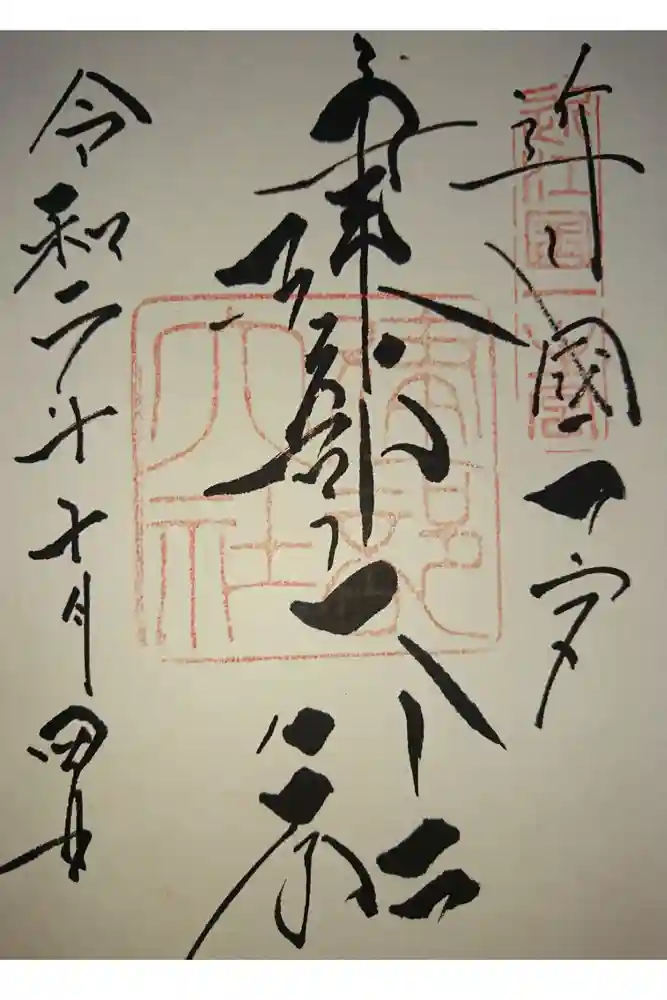 近江國一宮
建部大社
令和二年十月四日
近江國一宮
建部大社